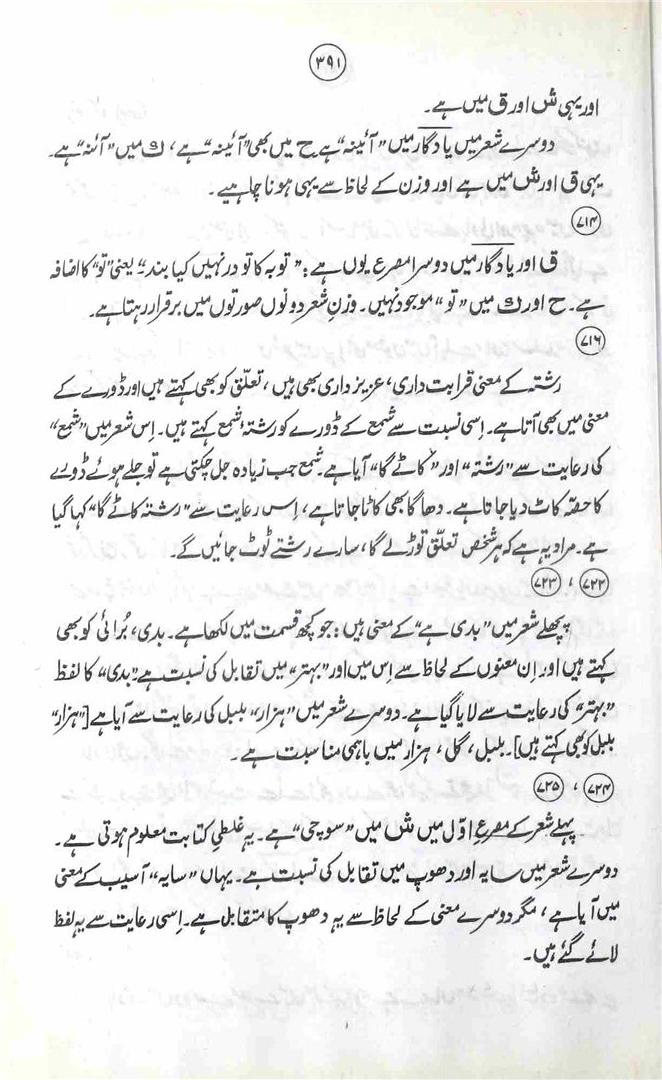 ۳۹۱
اور یہی ش اور ق میں ہے۔
دوسرے شعر میں یادگار میں ”آئینہ“ ہے ح میں بھی ”آئینہ“ ہے، ک میں ”آئنہ“ ہے۔
یہی ق اور ش میں ہے اور وزن کے لحاظ سے یہی ہونا چاہیے۔
۷۱۴
ق اور یادگار میں دوسرا مصرع یوں ہے: ”توبہ کا تو در نہیں کیا بند“۔ یعنی ”تو“ کا اضافہ
ہے۔ ح اور ک میں ”تو“ موجود نہیں۔ وزنِ شعر دونوں صورتوں میں برقرار رہتا ہے۔
۷۱۶
رشتہ کے معنی قرابت داری، عزیز داری بھی ہیں، تعلّق کو بھی کہتے ہیں اور ڈورے کے
معنی میں بھی آتا ہے۔ اِسی نسبت سے شمع کے ڈورے کو رشتۂ شمع کہتے ہیں۔ اِس شعر میں ”شمع“
کی رعایت سے ”رشتہ“ اور ”کاٹے گا“ آیا ہے۔ شمع جب زیادہ جل چکتی ہے تو جلے ہوئے ڈورے
کا حصّہ کاٹ دیا جاتا ہے۔ دھاگا بھی کاٹا جاتا ہے، اِس رعایت سے ”رشتہ کاٹے گا“ کہا گیا
ہے۔ مراد یہ ہے کہ ہر شخص تعلّق توڑلے گا، سارے رشتے ٹوٹ جائیں گے۔
۷۲۲، ۷۲۳
پچھلے شعر میں ”بدی ہے“ کے معنی ہیں: جو کچھ قسمت میں لکھا ہے۔ بدی، بُرائی کو بھی
کہتے ہیں اور اِن معنوں کے لحاظ سے اِس میں اور ”بہتر“ میں تقابل کی نسبت ہے۔ ”بدی“ کا لفظ
”بہتر“ کی رعایت سے لایا گیا ہے۔ دوسرے شعر میں ”ہزار“ بلبل کی رعایت سے آیا ہے [”ہزار“
بلبل کو بھی کہتے ہیں]۔ بلبل، گل، ہزار میں باہمی مناسبت ہے۔
۷۲۴، ۷۲۵
پہلے شعر کے مصرعِ اوّل میں ش میں ”سوچی“ ہے۔ یہ غلطیِ کتابت معلوم ہوتی ہے۔
دوسرے شعر میں سایہ اور دھوپ میں تقابل کی نسبت ہے۔ یہاں ”سایہ“ آسیب کے معنی
میں آیا ہے، مگر دوسرے معنی کے لحاظ سے یہ دھوپ کا متقابل ہے۔ اِسی رعایت سے یہ لفظ
لائے گئے ہیں۔